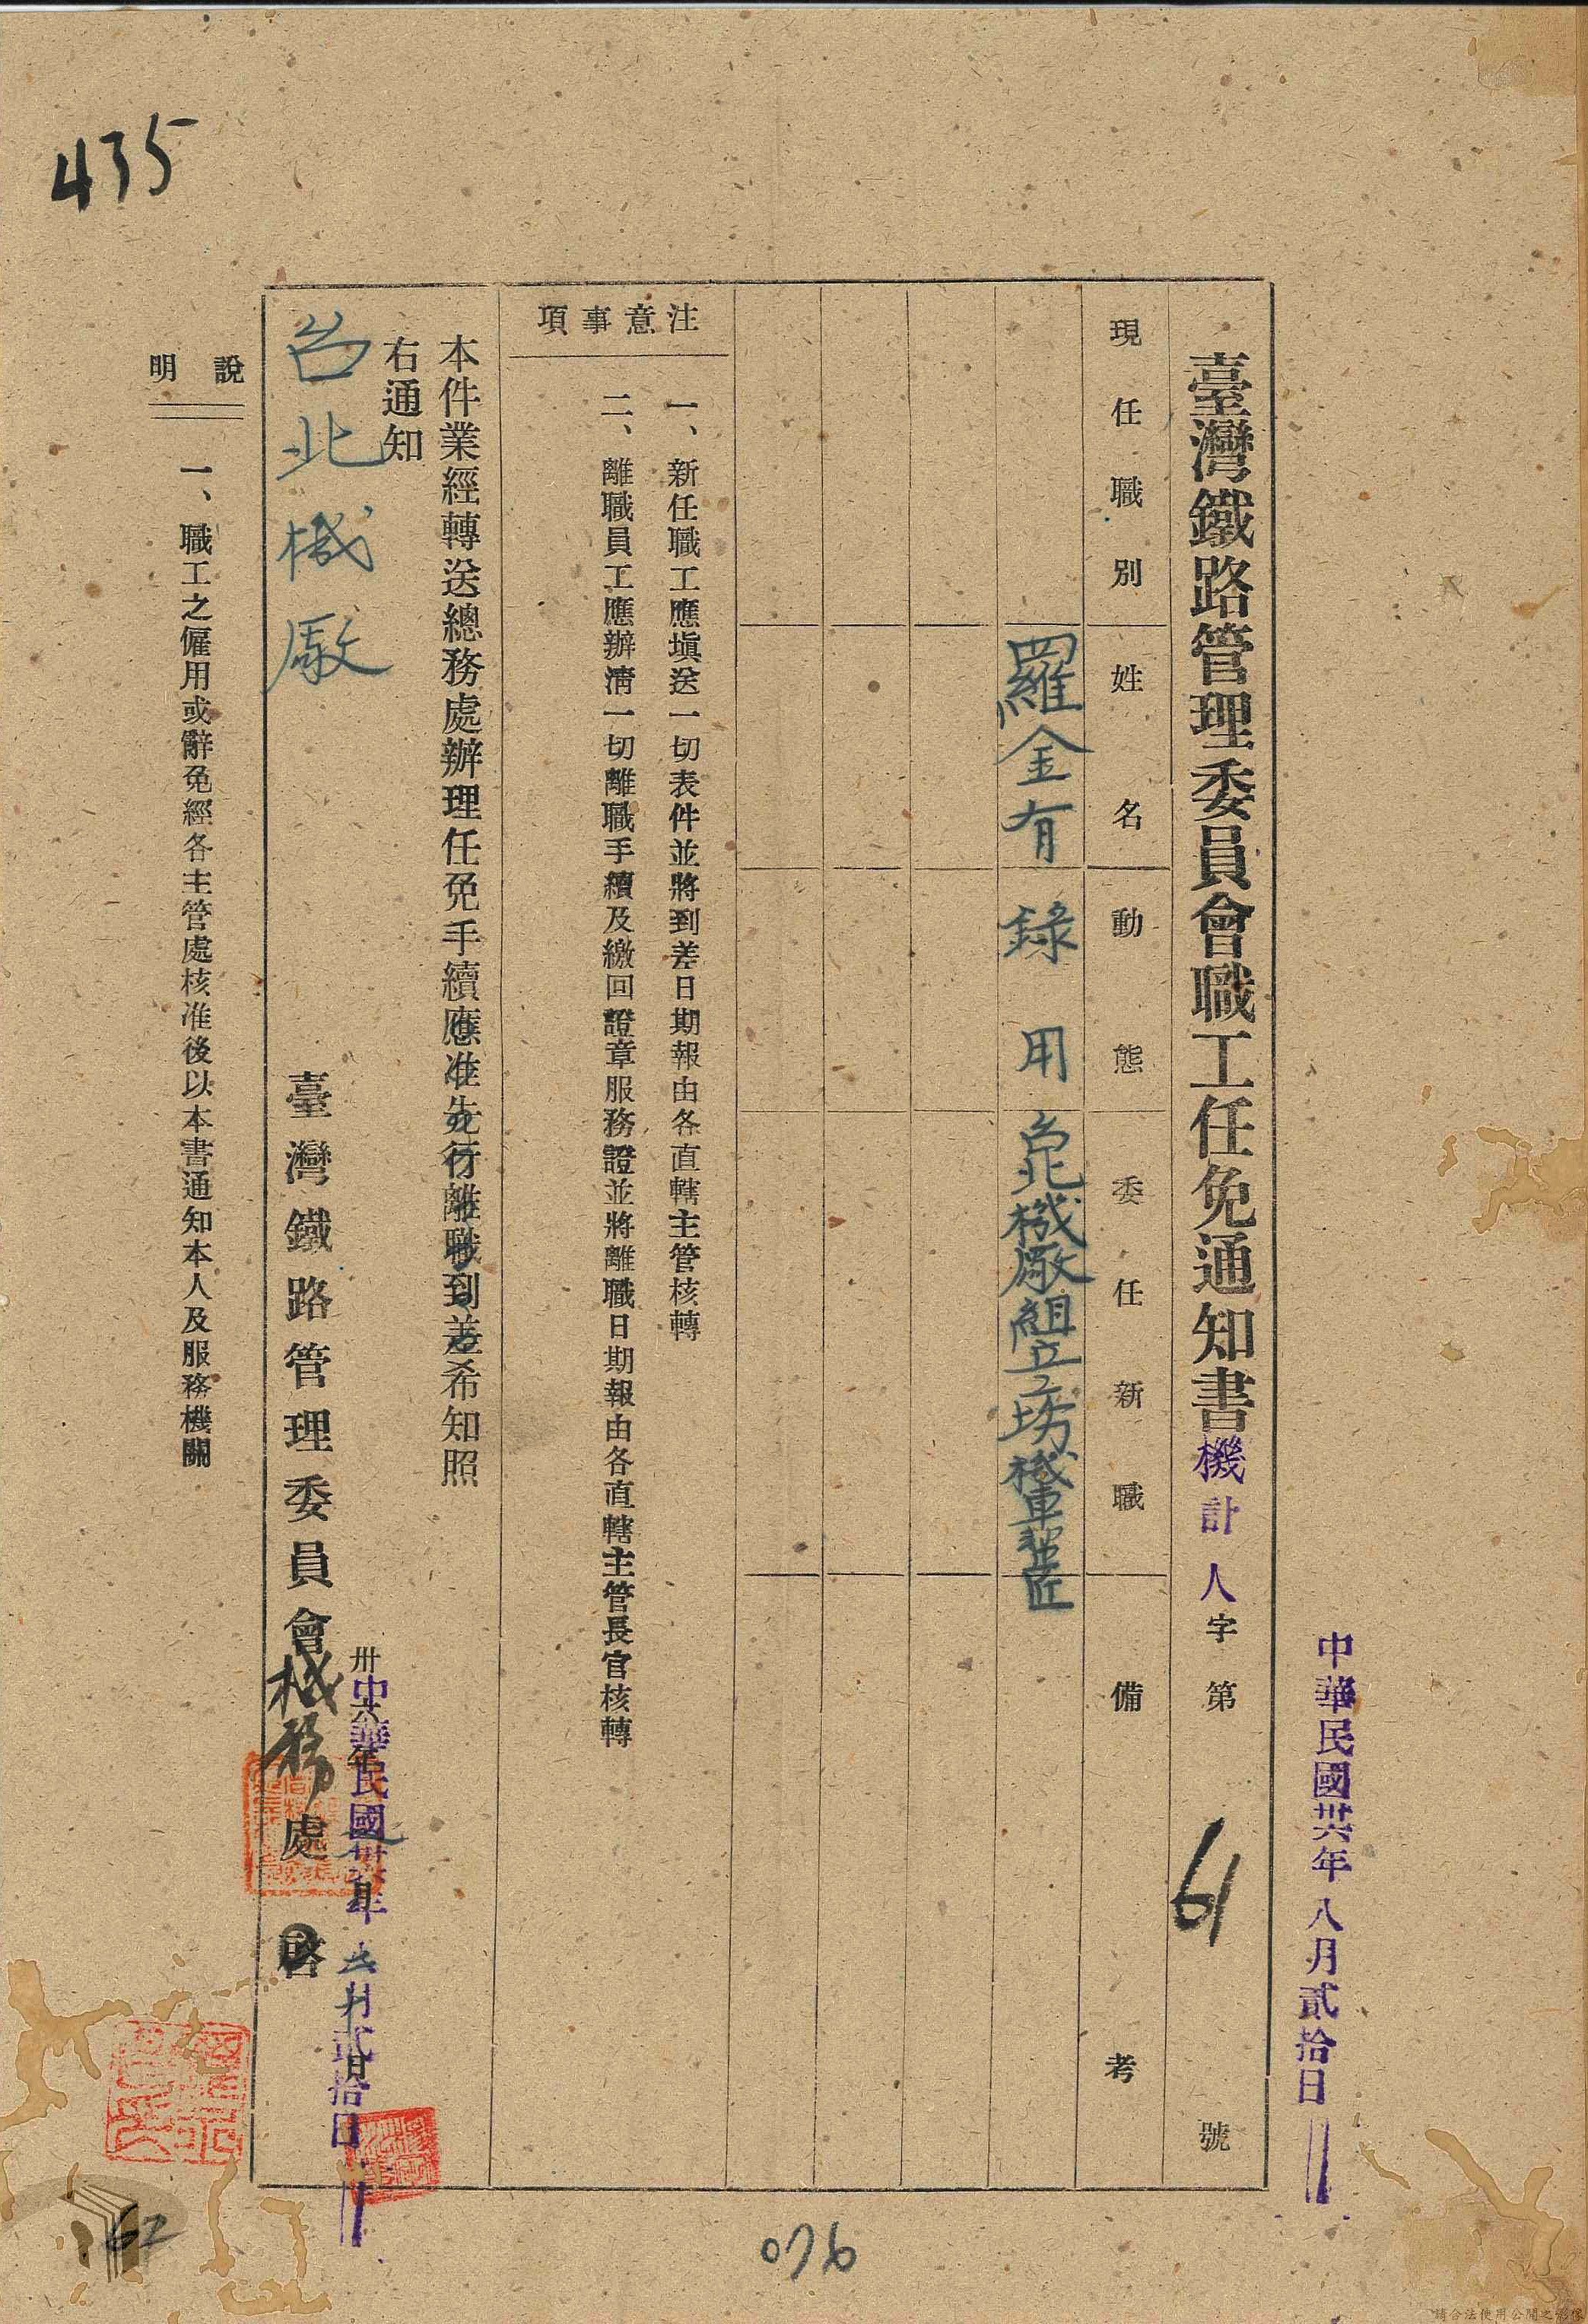 中華民國卅六年八月貳拾日
臺灣鐵路管理委員會職工任免通知書 機計人字第 61 號
現任職別 姓名 動態 委任新職 備考
羅金有 錄用 台北機厰組立工場機車裝匠
注意事項
一、新任職工應填送一切表件並將到差日期報由各直轄主管核轉
二、離職員工應辦清一切離職手續及繳回證章服務證並將離職日期報由各直轄主管長官核轉
本件業經轉送總務處辦理任免手續應准先行離職到差希知照
右通知
台北機厰
臺灣鐵路管理委員會機務處啓
卅六年 月 日
中華民國卅六年 月貳拾日
說明
一、職工之僱用或辭免經各主管處核准後以本書通知本人及服務機關
435
076
62
請合法使用公開之影像